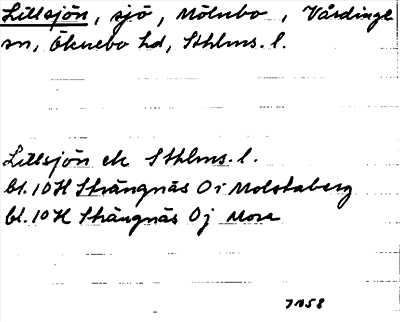 Lillsjön, sjö, Mölnbo, Vårdinge
sn, Öknebo hd, Sthlms. l.
Lillsjön ek Sthlms. l.
bl. 10H Strängnäs 0i Molstaberg
bl. 10H Strängnäs 0j Mora
7158